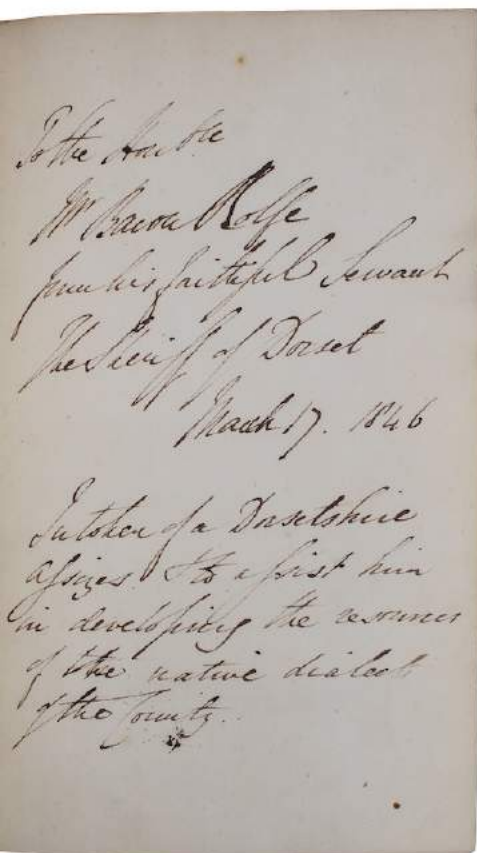 To the Honble
Mr Baron Rolfe
from his faithful Servant
The Sheriff of Dorset
March 17. 1846
In token of a Dorsetshire
Assizes & to assist him
in developing the resources
of the native dialect
of the County.